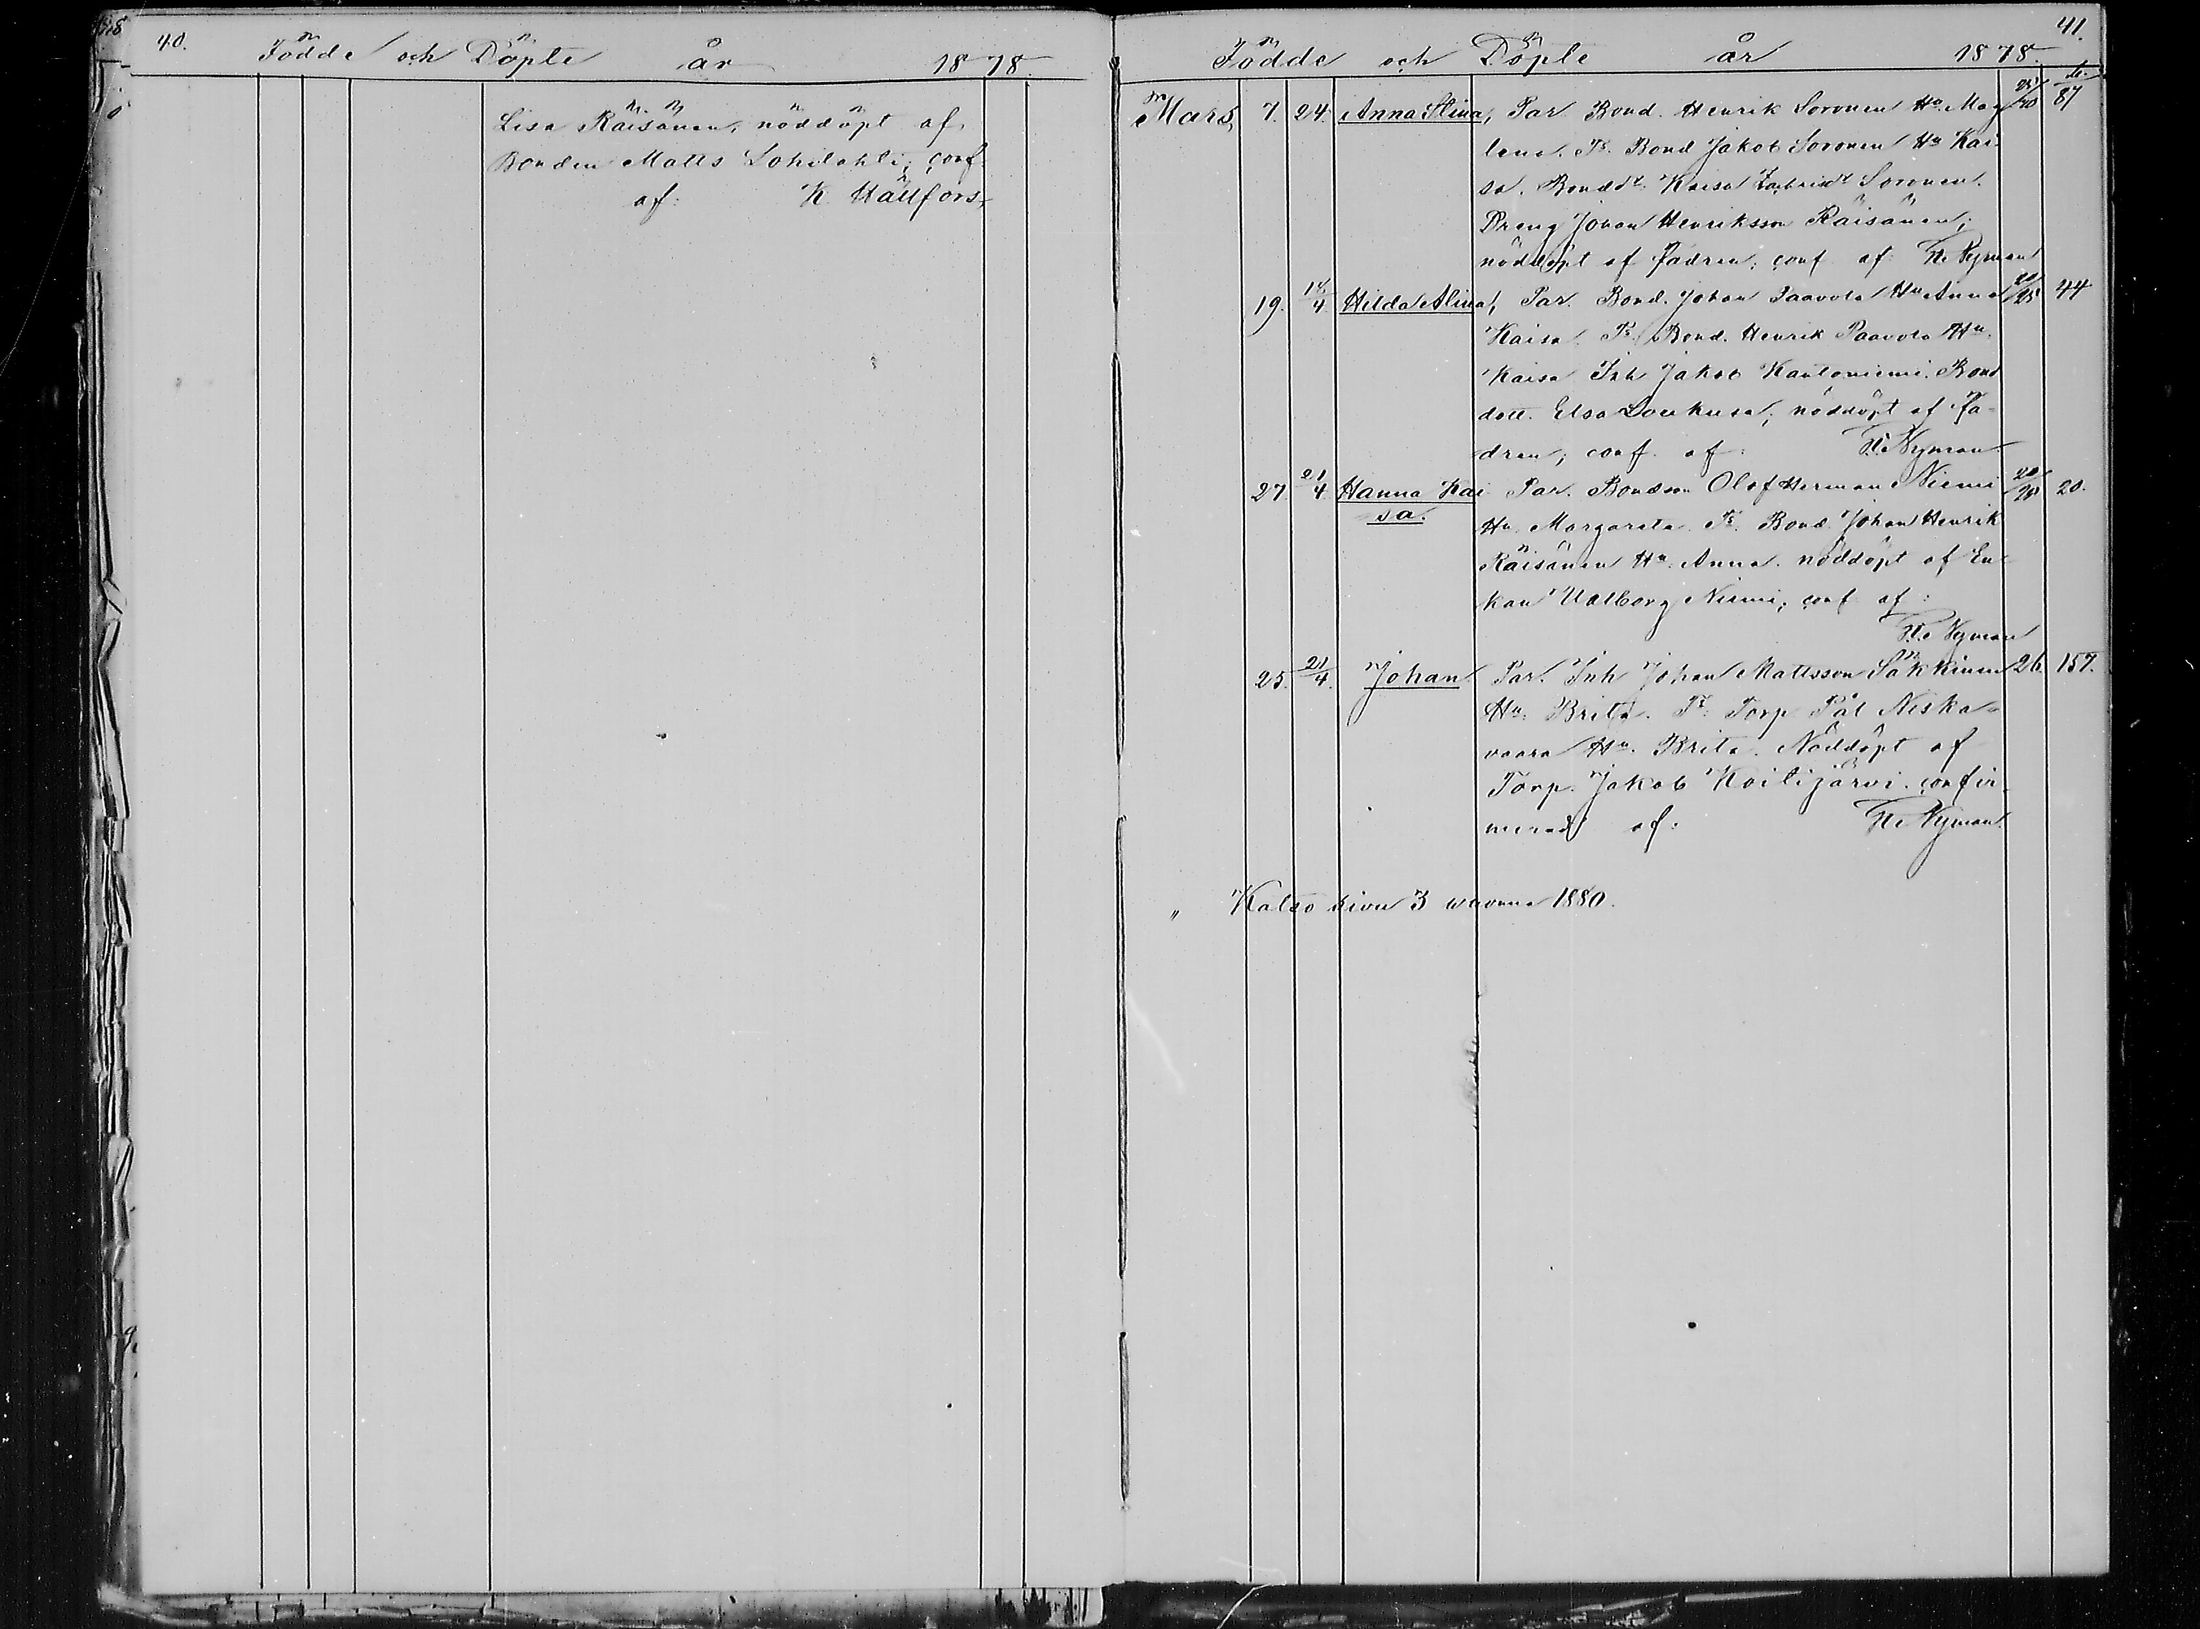 40.
Födde och Döpte år 1878.
Lisa Räisänen, nöddöpt af
Bonden Matts Lohilahti; conf
af: K Hällfors
41.
Födde och Döpte år 1878.
Mars 7. 24. Anna Stina, Par Bond. Henrik Soronen Hu. Mag 87
lena. Ts. Bond Jakob Soronen Hu Kai
sa. Bondd. Kaisa Soronen.
Dreng Johan Henriksson Räisänen;
nöddöpt af fadren; conf af Nyman
19. 14/4. Hilda Alina, Par. Bond. Johan Paavola Hu Anna 44
Kaisa Ts. Bond. Henrik Paavola Hu.
Kaisa Inh Jakob Kantoniemi. Bond
dott. Elsa Loukusa; nöddöpt af fa-
dren; conf. af: Nyman
27 21/4. Hanna Kai Par. Bondson Olof Herman Niemi 20.
sa. Hu. Margareta. Ts. Bond. Johan Henrik
Räisänen Hu. Anna. nöddöpt af En
kan Walborg Niemi; conf af:
Nyman
25. 21/4. Johan Par. Inh Johan Mattsson Säkkinen 26. 157.
Hu. Brita. Ts. Torp Pål Niska-
vaara Hu. Brita. Nöddöpt af
Torp. Jakob Koitijärvi. confir
merad af: Nyman.
" Katso sivu 3 wuonna 1880.